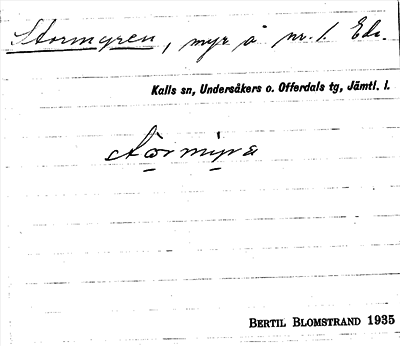 Stormyren, myr å nr. 1 Ede.
Kalls sn, Undersåkers o. Offerdals tg, Jämtl. l.
störmyra
BERTIL BLOMSTRAND 1935